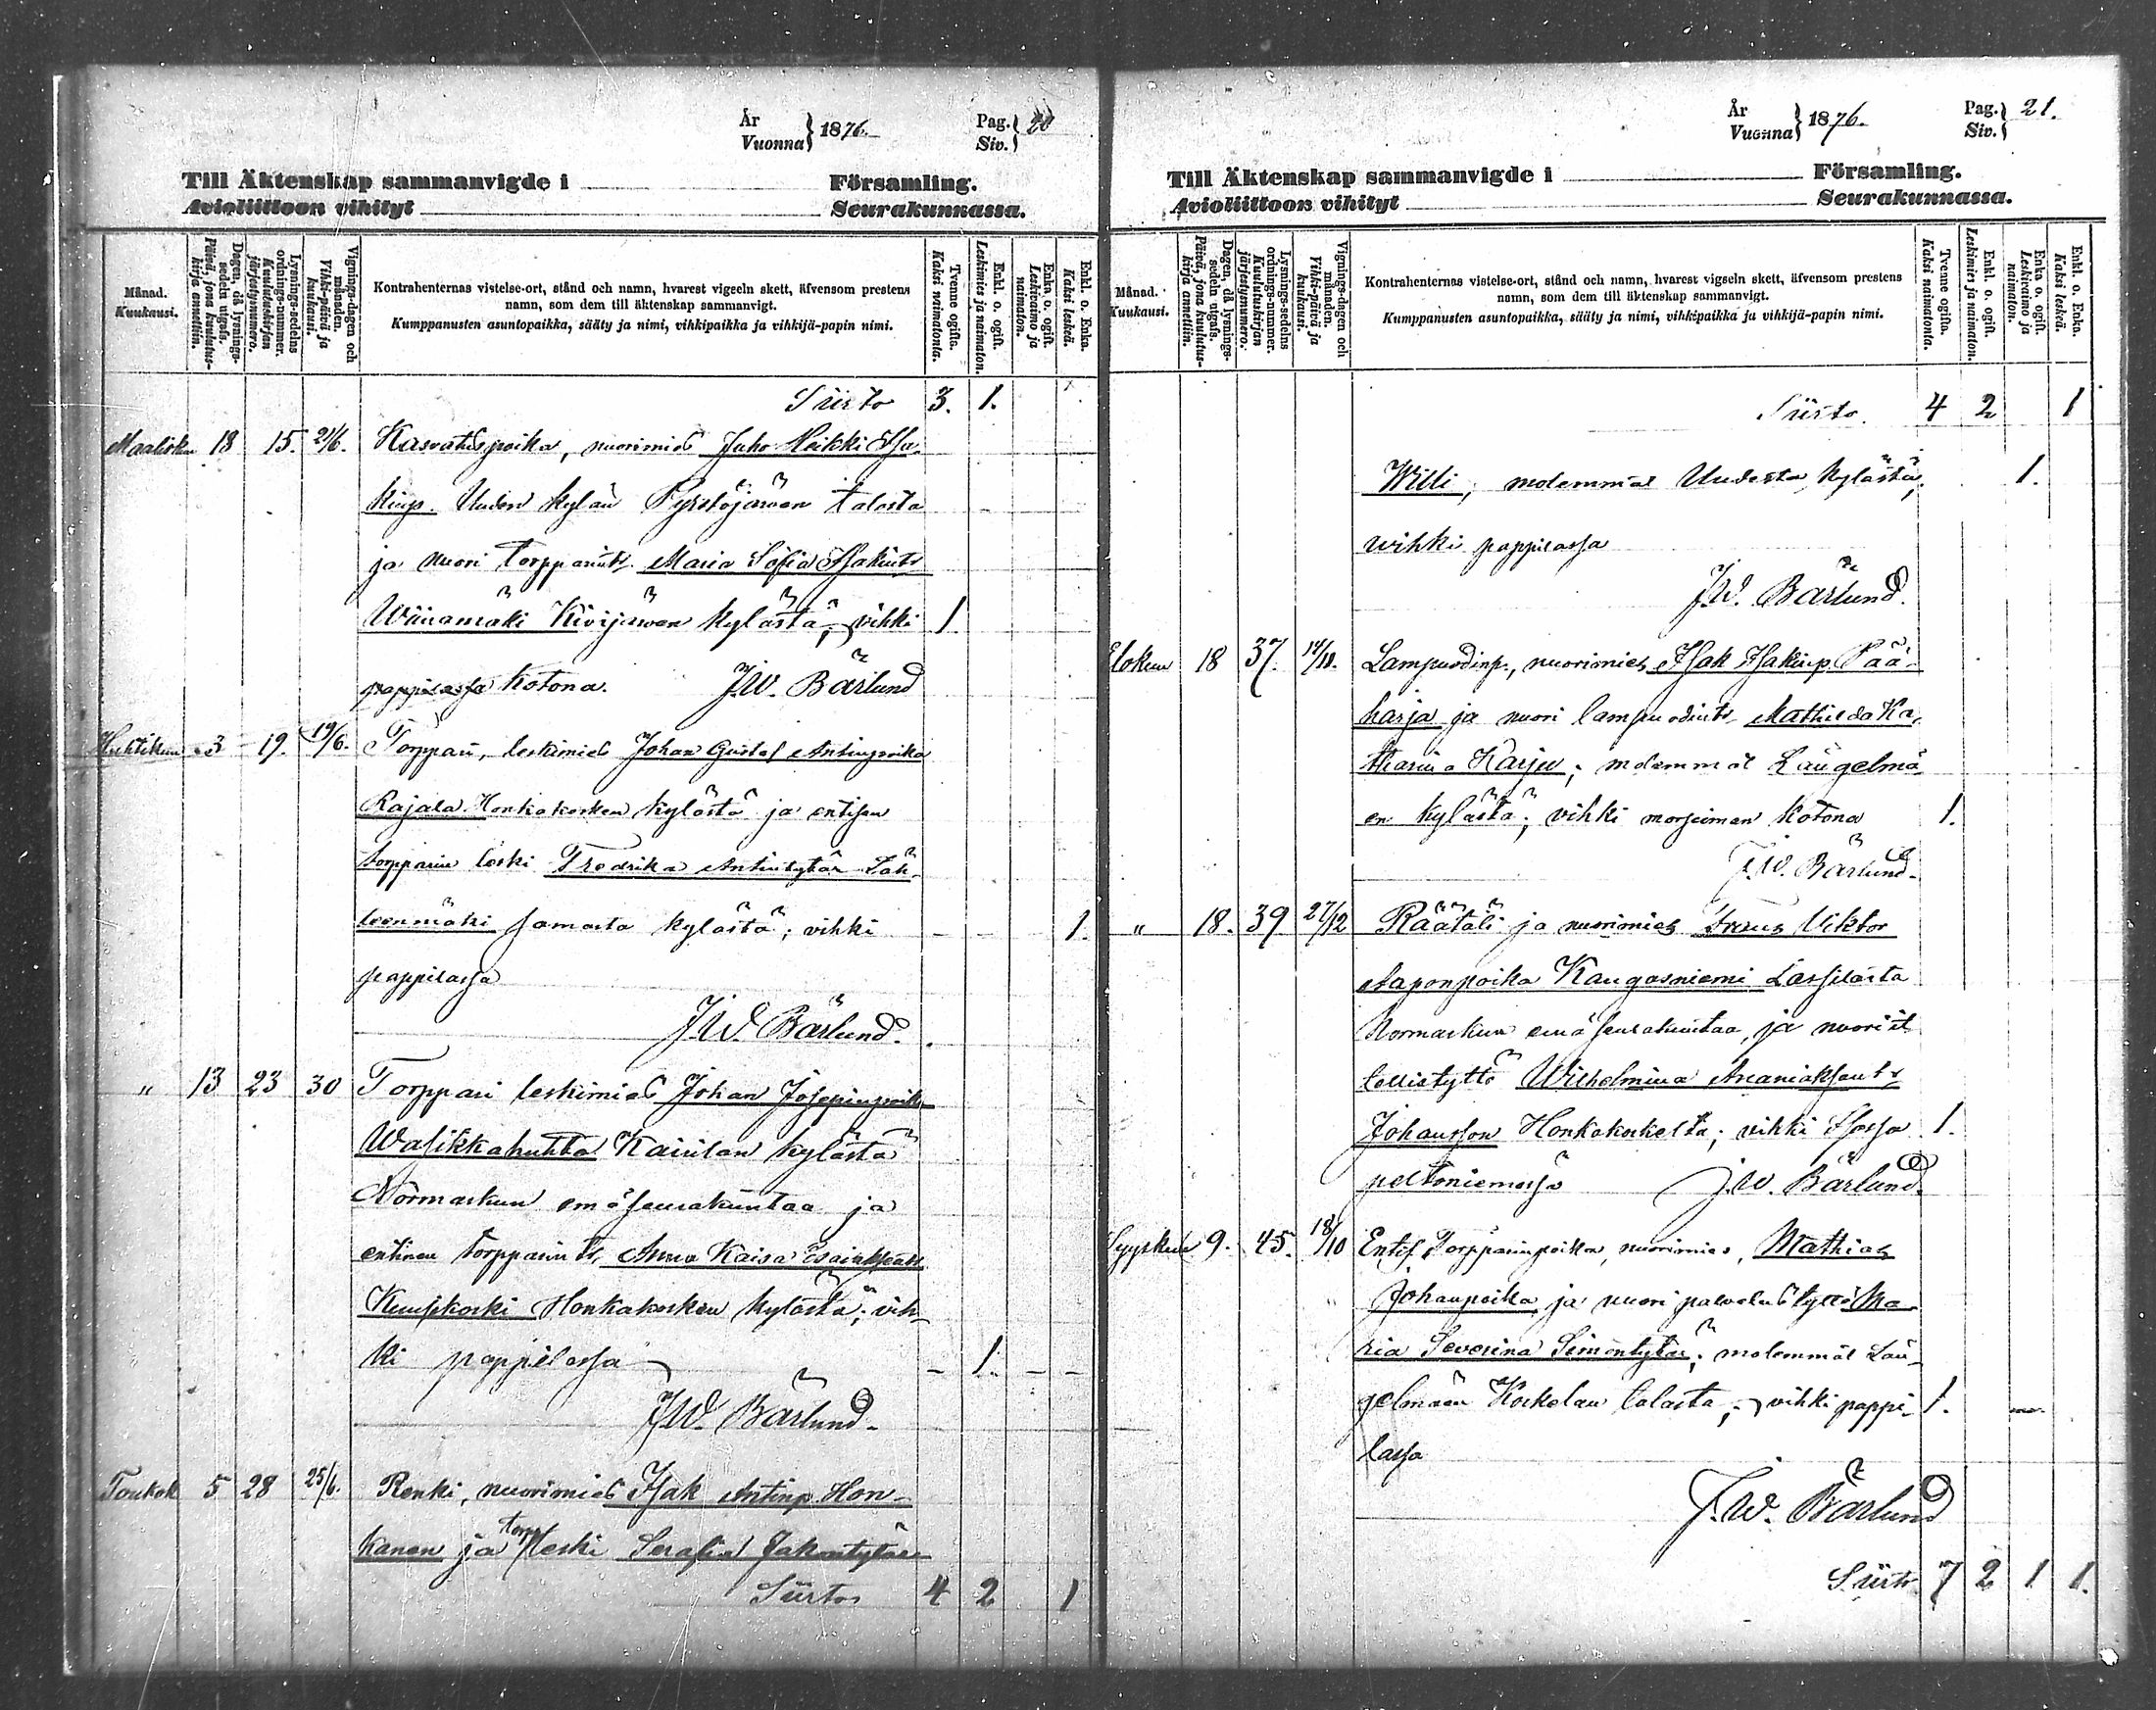 År
Vuonna } 1876.
Pag.
Siv. } 20
Till Äktenskap sammanvigde i Församling.
Avioliittoon vihityt Seurakunnassa.
Månad.
Kuukausi.
Dagen, då lysnings-
sedeln utgafs.
Päivä, jona kuulutus-
kirja annettiin.
Lysnings-sedelns
ordnings-nummer.
Kuulutuskirjan
järjestysnumero.
Vignings-dagen och
månaden.
Vihki-päivä ja
kuukausi.
Kontrahenternas vistelse-ort, stånd och namn, hvarest vigseln skett, äfvensom prestens
namn, som dem till äktenskap sammanvigt.
Kumppanusten asuntopaikka, sääty ja nimi, vihkipaikka ja vihkijä-papin nimi.
Tvenne ogifta.
Kaksi naimatonta.
Enkl. o. ogift.
Leskimies ja naimaton.
Enka o. ogift.
Leskivaimo ja
naimaton.
Enkl. o. Enka.
Kaksi leskeä.
Siirto 3. 1.
Maalisku 18 15. 21/6. Kasvatuspoika, nuorimies Juho Heikki Isa-
kinp. Uuden kylän Pyssöjärven talosta
ja nuori torpparint. Maria Sofia Isakint.
Kivijärven kylästä; vihki 1
pappilassa kotona. J.W. Bärlund
Huhtikuu 3 19. 19/6. Torppari, leskimies Johan Gustaf Antinpoika
Rajala Honkakosken kylästä ja entisen
torpparin leski Fredrika Antintytär Läh-
teenmäki samasta kylästä; vihki 1.
pappilassa
J.W. Bärlund.
" 13 23 30 Torppari leskimies Johan Josepinpoika
Wasikkahuhta Kairilan kylästä
Normarkun emäseurakuntaa ja
entinen torpparint. Anna Kaisa Esaiaksent.
Honkakosken kylästä; vih-
ki pappilassa 1.
J.W. Bärlund.
Toukok 5 28 25/6. Renki, nuorimies Isak Antinp. Hon-
kanen ja torp. leski Serafia Jakontytär
Siirto 4 2 1
År
Vuonna } 1876.
Pag.
Siv. } 21.
Till Äktenskap sammanvigde i Församling.
Avioliittoon vihityt Seurakunnassa.
Månad.
Kuukausi.
Dagen, då lysnings-
sedeln utgafs.
Päivä, jona kuulutus-
kirja annettiin.
Lysnings-sedelns
ordnings-nummer.
Kuulutuskirjan
järjestysnumero.
Vignings-dagen och
månaden.
Vihki-päivä ja
kuukausi.
Kontrahenternas vistelse-ort, stånd och namn, hvarest vigseln skett, äfvensom prestens
namn, som dem till äktenskap sammanvigt.
Kumppanusten asuntopaikka, sääty ja nimi, vihkipaikka ja vihkijä-papin nimi.
Tvenne ogifta.
Kaksi naimatonta.
Enkl. o. ogift.
Leskimies ja naimaton.
Enka o. ogift.
Leskivaimo ja
naimaton.
Enkl. o. Enka.
Kaksi leskeä.
Siirto. 4 2 1
Willi; molemmat Uudesta kylästä; 1.
vihki pappilassa
J.W. Bärlund.
Elokuu 18 37. 14/10. Lampuodinp., nuorimies Isak Isakinp. Pää-
harja ja nuori lampuodint. Mathilda Ka-
tharina Karju; molemmat Längelmä-
en kylästä; vihki morsiman kotona 1.
J.W. Bärlund.
" 18. 39 27/12 Räätäli ja nuorimies Frans Viktor
Aaponpoika Kangasniemi Lassilasta
Normarkun emäseurakuntaa, ja nuori it
tellistyttö Wilhelmina Ananiaksent.
Johansson Honkakoskelta; vihki Isossa 1.
peltoniemessä J.W. Bärlund.
Syyskuu 9. 45. 18/10 Entis. Torpparinpoika, nuorimies, Mathias
Johanpoika ja nuori palvelustyttö Ma-
ria Severina Simontytär; molemmat Län-
gelmäen Koskelan talosta; vihki pappi- 1.
lassa
J.W. Bärlund
Siirto 7 2 1 1.